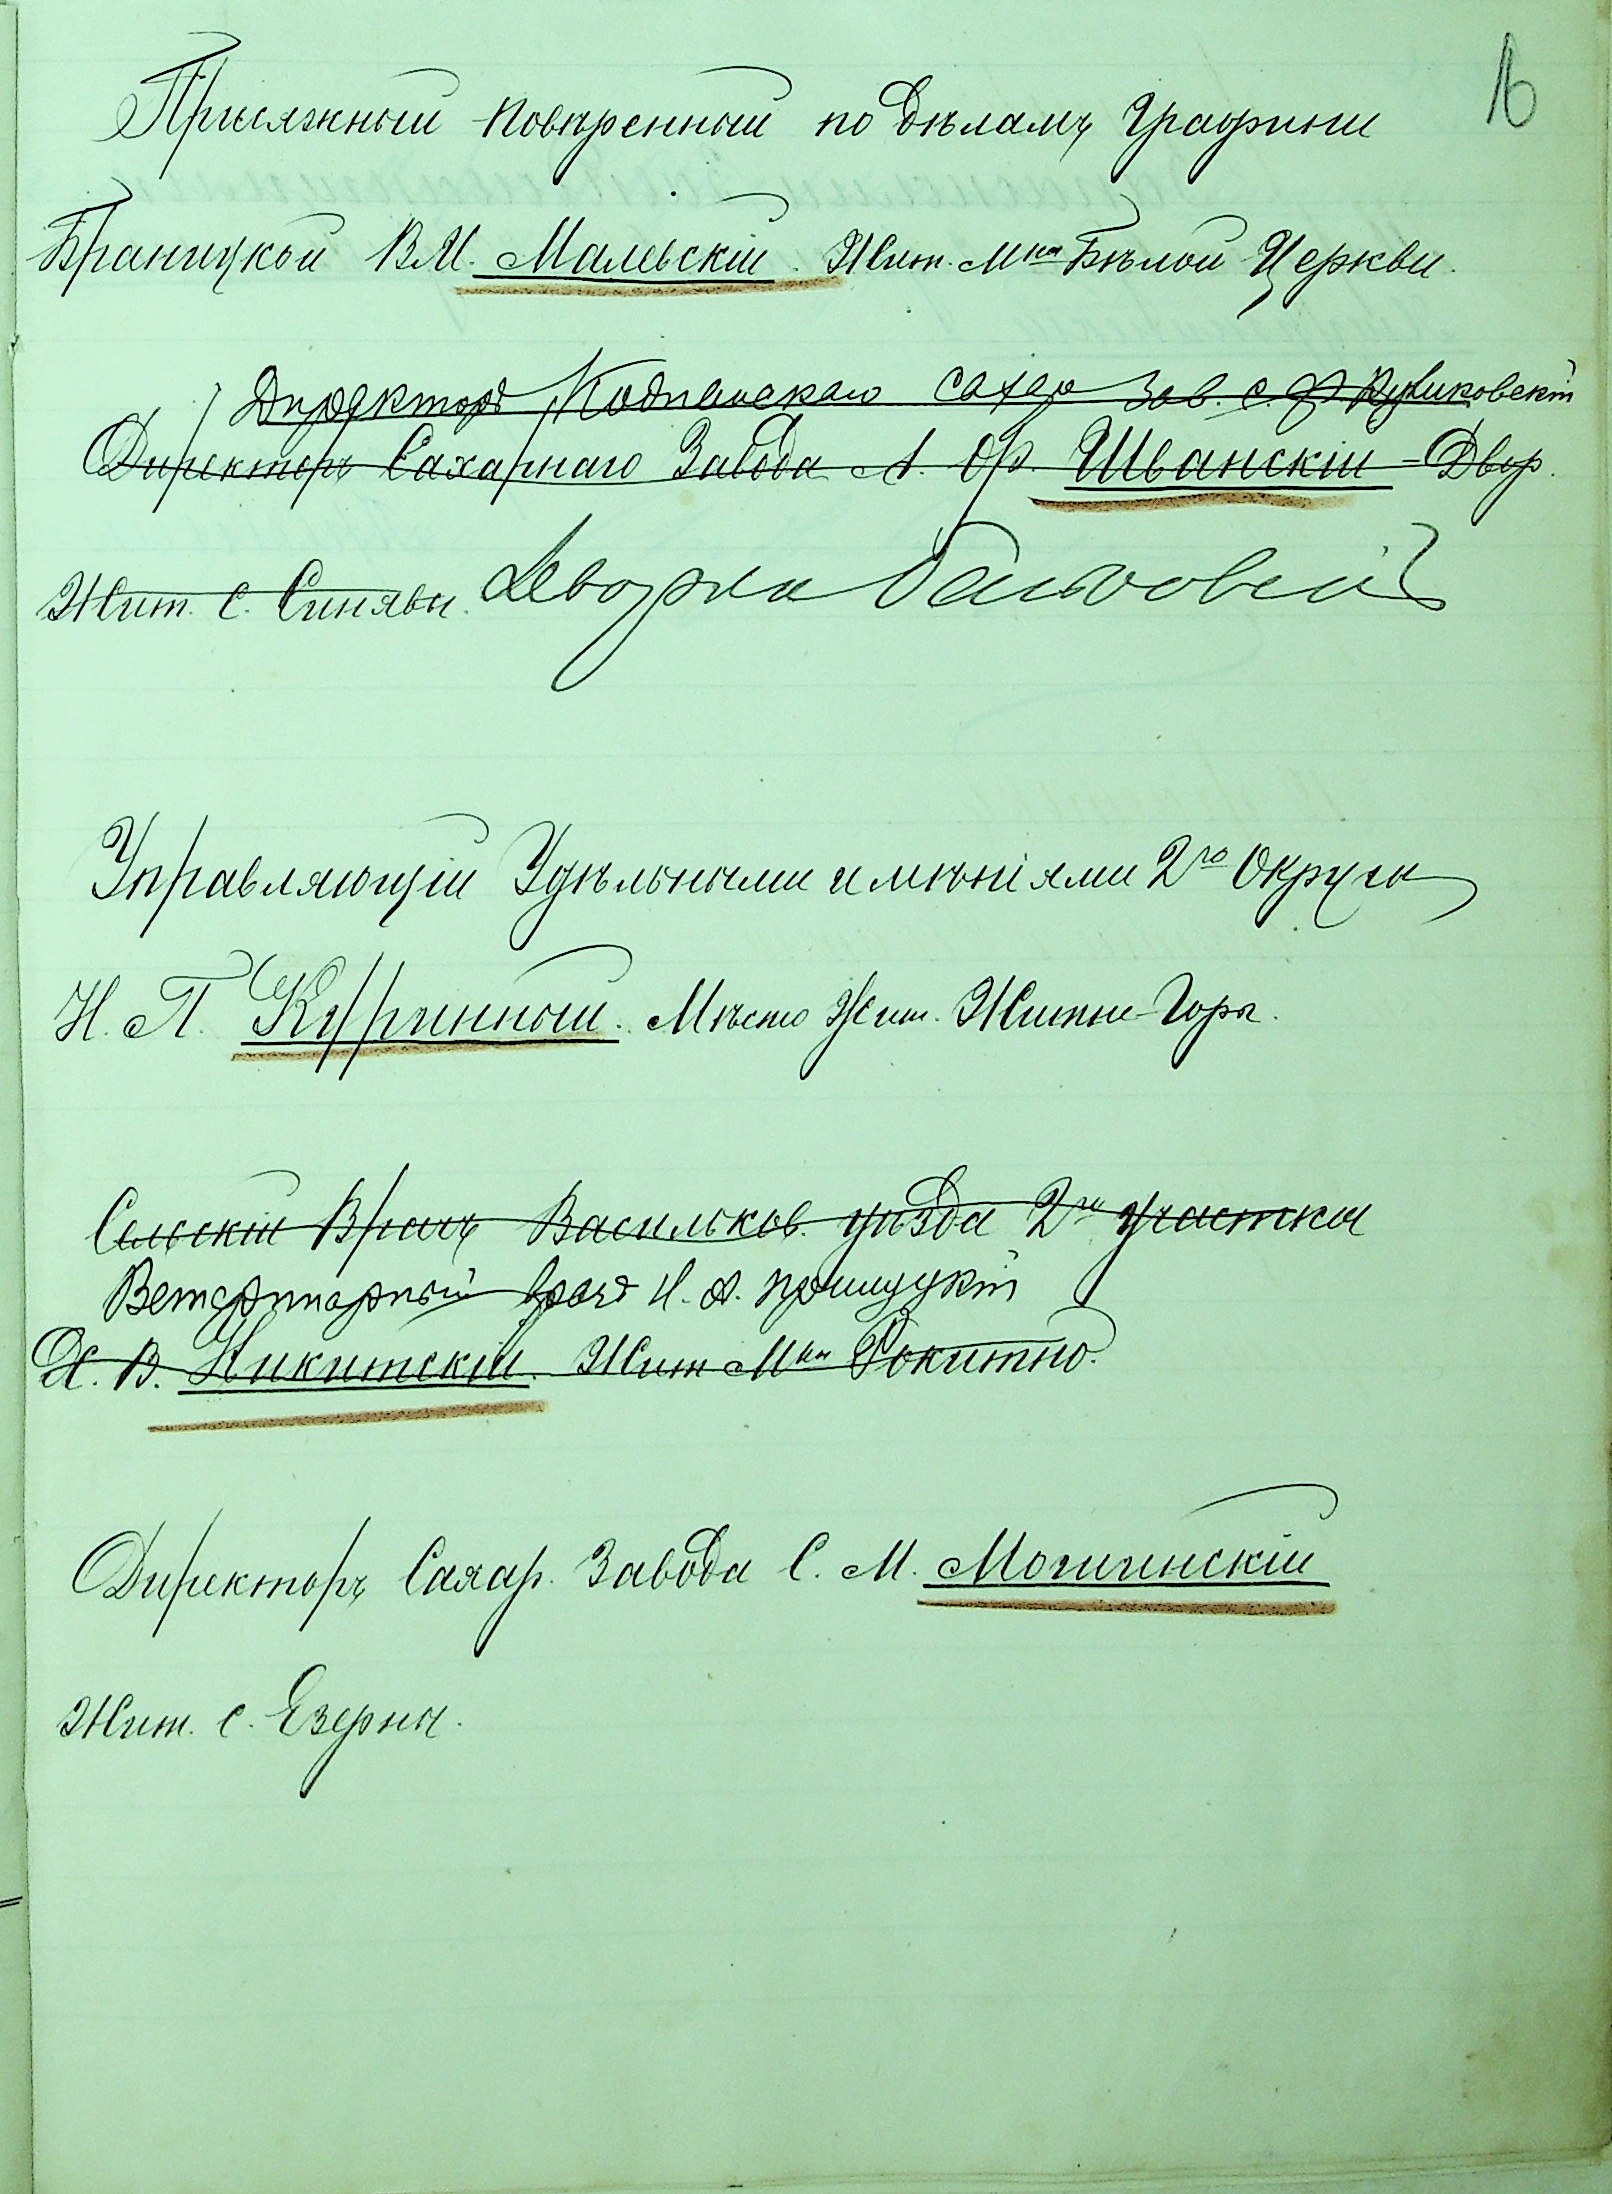 16
Присяжный Повѣренный по Дѣламъ Графини
Браницкой В М. Малевскій. Жит. Мка Бѣлой Церкви.
Директоръ сахар Зав. с. Ф.
Директоръ Сахарнаго Завода А. Ф. Шванскій - Двор.
Жит. с. Синявы.
Управляющій Удѣльными имѣніями 2го Округа
Н. П. Курринный. Мѣсто Жит. Житни-Горы.
Сельскій Врачъ Васильков. уѣзда 2го участка
Ветеринарный врачъ Н. А.
Х. В. Никитскій. Жит Мка Рокитно.
Директоръ Сахар. Завода С. М. Могигинскій
Жит. с. Езерны.